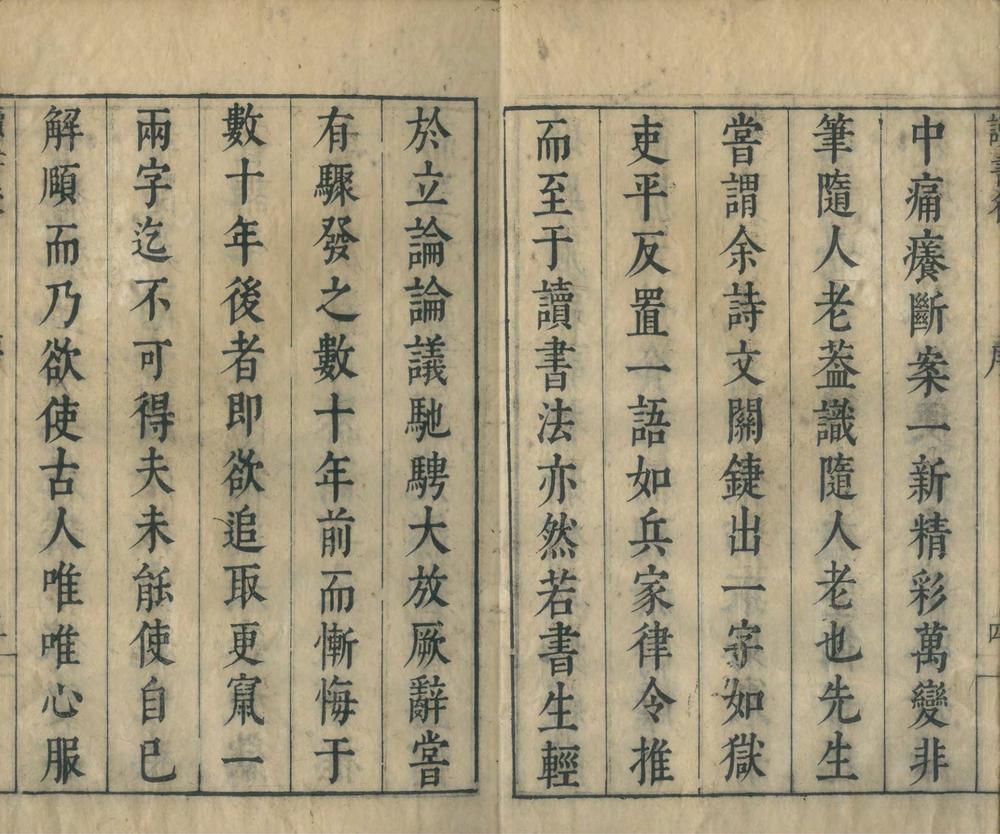 中痛癢斷案一新精彩萬變非
筆隨人老葢識隨人老也先生
嘗謂余詩文關鍵出一字如獄
吏平反置一語如兵家律令推
而至于讀書法亦然若書生輕
於立論論議馳騁大放厥辭嘗
有驟發之數十年前而慚悔于
數十年後者即欲追取更竄一
兩字迄不可得夫未能使自已
解頤而乃欲使古人唯唯心服